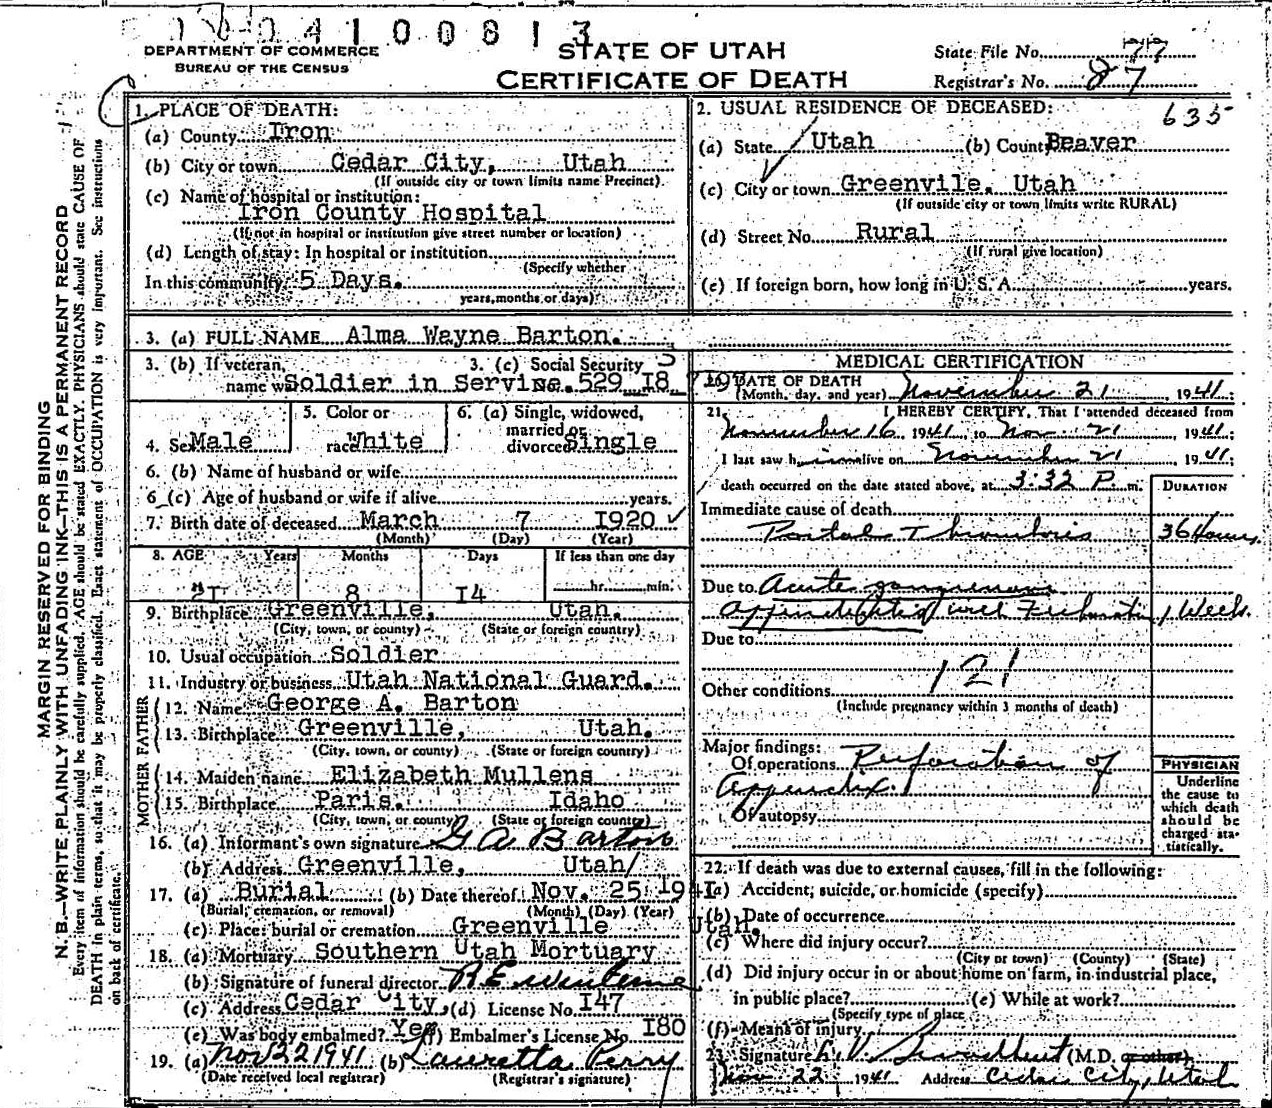 4100813
DEPARTMENT OF COMMERCE
BUREAU OF THE CENSUS
STATE OF UTAH
CERTIFICATE OF DEATH
State File No. 77
Registrar's No. 87
MARGIN RESERVED FOR BINDING
N. B.—WRITE PLAINLY WITH UNFADING INK—THIS IS A PERMANENT RECORD
Every item of information should be carefully supplied. AGE should be stated EXACTLY. PHYSICIANS should state CAUSE OF
DEATH in plain terms, so that it may be properly classified. Exact statement of OCCUPATION is very important. See instructions
on back of certificate.
1. PLACE OF DEATH:
(a) County Iron
(b) City or town Cedar City, Utah
(If outside city or town limits name Precinct)
(c) Name of hospital or institution:
Iron County Hospital
(If not in hospital or institution give street number or location)
(d) Length of stay: In hospital or institution
(Specify whether
In this community 5 Days.
years, months, or days)
2. USUAL RESIDENCE OF DECEASED:
635
(a) State Utah (b) County Beaver
(c) City or town Greenvile. Utah
(If outside city or town limits write RURAL)
(d) Street No. Rural
(If rural give location)
(e) If foreign born, how long in U. S. A. years.
3. (a) FULL NAME Alma Wayne Barton.
3. (b) If veteran, 3. (c) Social Security
name war Soldier in Servine. No. 529 I8
4. Sex Male
5. Color or
race White
6. (a) Single, widowed,
married or
divorced Single
6. (b) Name of husband or wife
6 (c) Age of husband or wife if alive years.
7. Birth date of deceased March 7 I920
(Month) (Day) (Year)
8. AGE Years Months Days If less than one day
2I 8 I4 hr. min.
9. Birthplace Greenville, Utah.
(City, town, or county) (State or foreign country)
10. Usual occupation Soldier
11. Industry or business Utah National Guard.
FATHER
12. Name George A. Barton
13. Birthplace Greenville, Utah.
(City, town, or county) (State or foreign country)
MOTHER
14. Maiden name Elizabeth Mullens
15. Birthplace Paris. Idaho
(City, town, or county) (State or foreign country)
16. (a) Informant's own signature G A Barton
(b) Address Greenville, Utah/
17. (a) Burial (b) Date thereof Nov. 25 194I
(Burial, cremation, or removal) (Month) (Day) (Year)
(c) Place: burial or cremation Greenville Utah.
18. (a) Mortuary Southern Utah Mortuary
(b) Signature of funeral director
(c) Address Cedar City, (d) License No. I47
(e) Was body embalmed? Yes (f) Embalmer's License No. I80
19. (a) Nov 22 1941 (b) Lauretta Perry
(Date received local registrar) (Registrar's signature)
MEDICAL CERTIFICATION
20. DATE OF DEATH
(Month, day, and year) November 21 1941:
21. I HEREBY CERTIFY, That I attended deceased from
November 16 1941, to Nov 21 1941:
I last saw him alive on November 21 1941:
death occurred on the date stated above, at 3:32 P. m.
DURATION
Immediate cause of death
Portal Thrombosis 36 Hours
Due to Acute gangrenous
Appendicitis with 1 Week
Due to
121
Other conditions
(Include pregnancy within 3 months of death)
Major findings:
Of operations Perforation of
Appendix.
Of autopsy
PHYSICIAN
Underline
the cause to
which death
should be
charged sta-
tistically.
22. If death was due to external causes, fill in the following:
(a) Accident, suicide, or homicide (specify)
(b) Date of occurrence
(c) Where did injury occur?
(City or town) (County) (State)
(d) Did injury occur in or about home on farm, in industrial place,
in public place? (e) While at work?
(Specify type of place
(f) Means of injury
23. Signature (M.D. or other)
Nov 22 1941 Address Cedar City, Utah